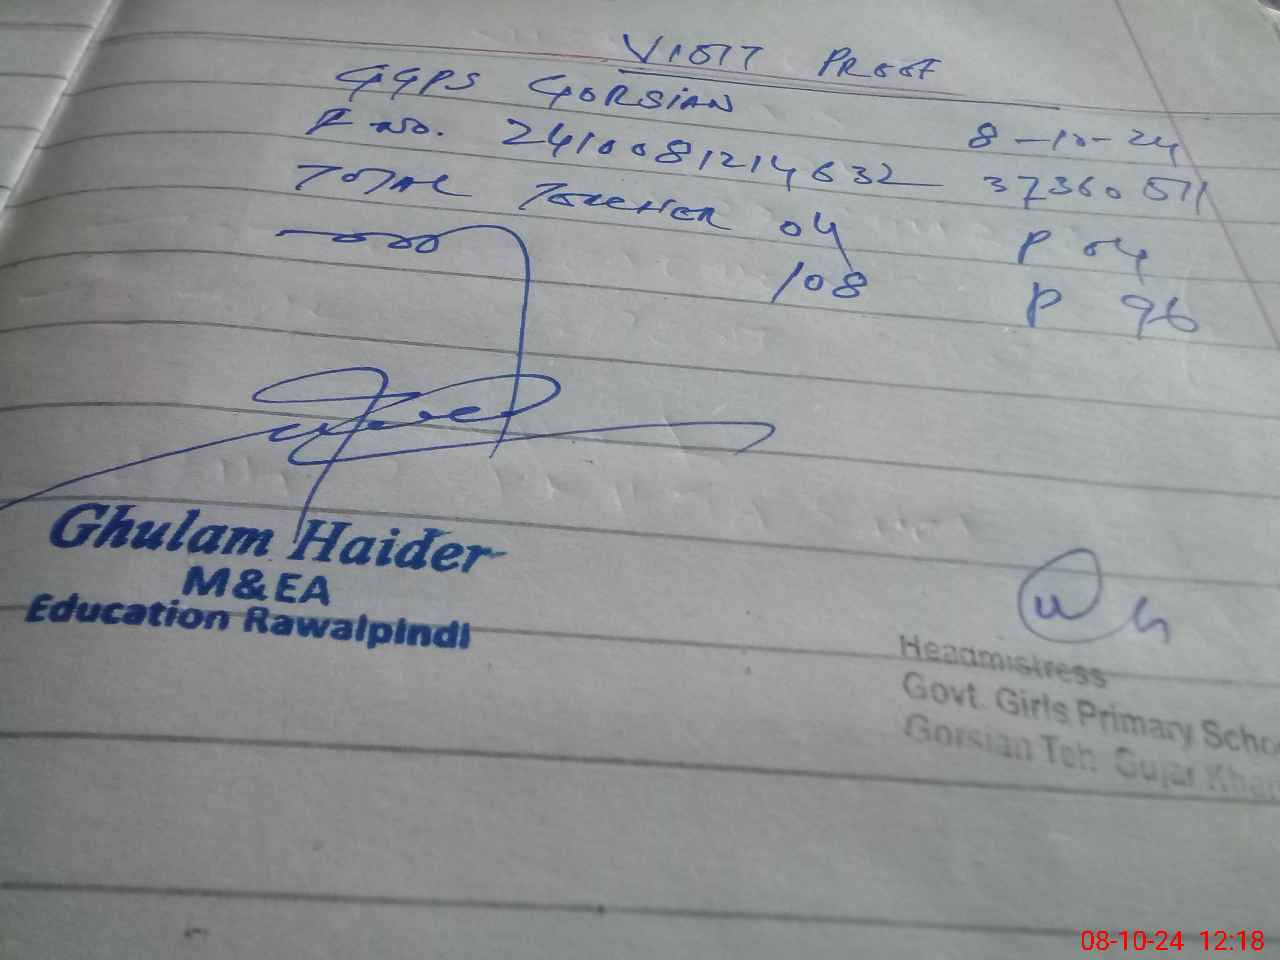 VISIT PROOF
GGPS GORSIAN 8-10-24
F no. 2410081214632 37360571
TOTAL TEACHER 04 P 04
108 P 96
Ghulam Haider
M&EA
Education Rawalpindi
Headmistress
Govt. Girls Primary Schoo
Gorsian Teh. Gujar Kha
08-10-24 12:18